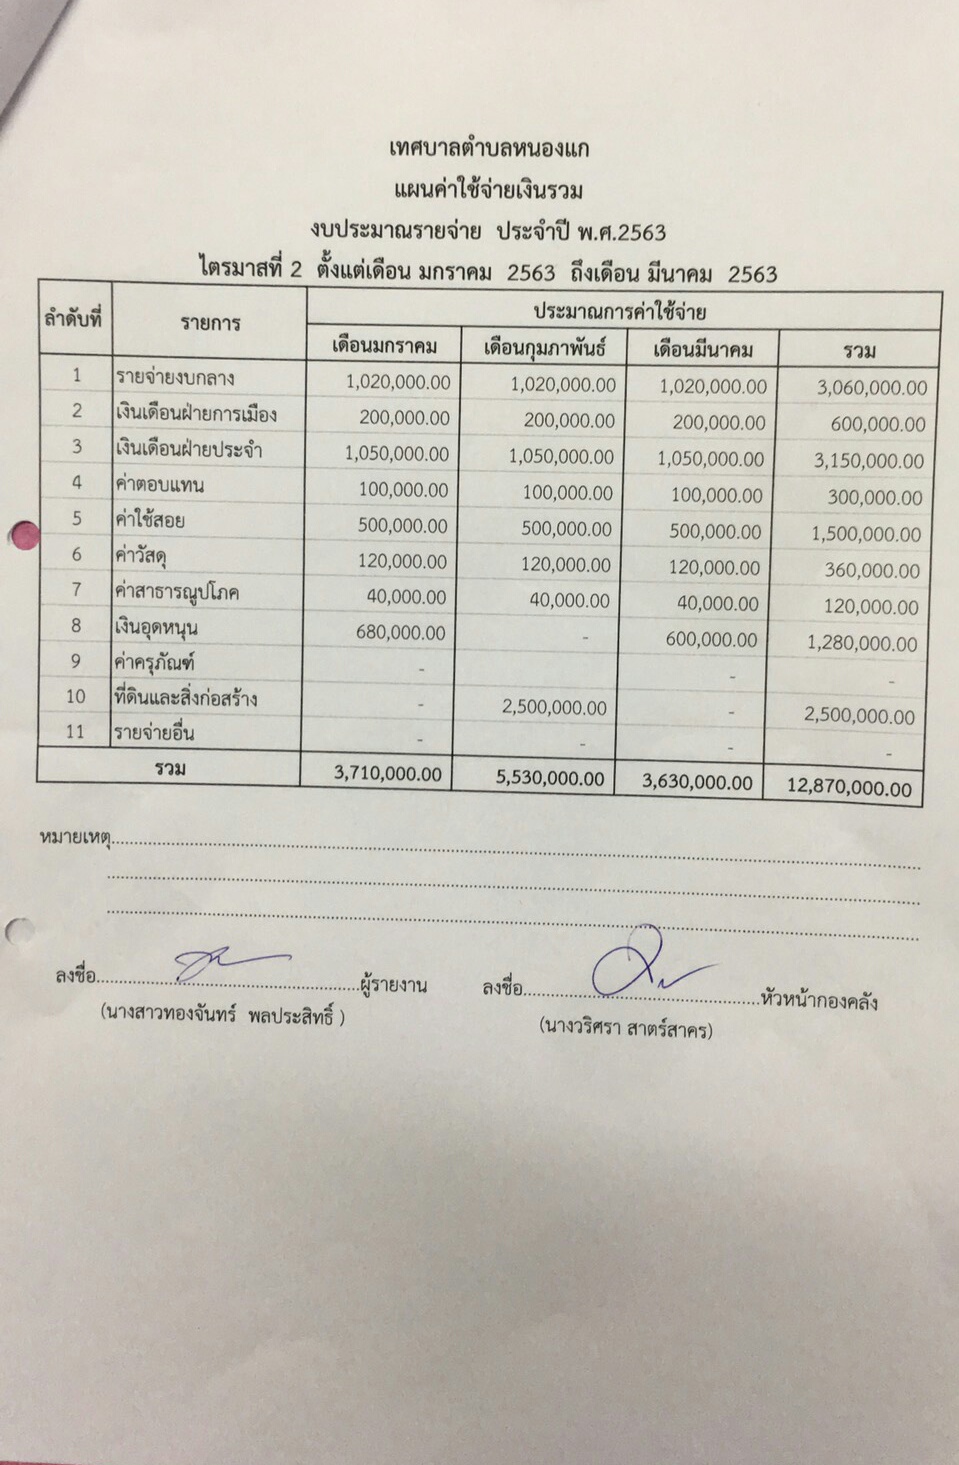 เทศบาลตำบลหนองแก
แผนค่าใช้จ่ายเงินรวม
งบประมาณรายจ่าย ประจำปี พ.ศ.2563
ไตรมาสที่ 2 ตั้งแต่เดือน มกราคม 2563 ถึงเดือน มีนาคม 2563
ลำดับที่ รายการ ประมาณการค่าใช้จ่าย
เดือนมกราคม เดือนกุมภาพันธ์ เดือนมีนาคม รวม
1 รายจ่ายงบกลาง 1,020,000.00 1,020,000.00 1,020,000.00 3,060,000.00
2 เงินเดือนฝ่ายการเมือง 200,000.00 200,000.00 200,000.00 600,000.00
3 เงินเดือนฝ่ายประจำ 1,050,000.00 1,050,000.00 1,050,000.00 3,150,000.00
4 ค่าตอบแทน 100,000.00 100,000.00 100,000.00 300,000.00
5 ค่าใช้สอย 500,000.00 500,000.00 500,000.00 1,500,000.00
6 ค่าวัสดุ 120,000.00 120,000.00 120,000.00 360,000.00
7 ค่าสาธารณูปโภค 40,000.00 40,000.00 40,000.00 120,000.00
8 เงินอุดหนุน 680,000.00 - 600,000.00 1,280,000.00
9 ค่าครุภัณฑ์ - - -
10 ที่ดินและสิ่งก่อสร้าง - 2,500,000.00 - 2,500,000.00
11 รายจ่ายอื่น - - - -
รวม 3,710,000.00 5,530,000.00 3,630,000.00 12,870,000.00
หมายเหตุ..........
ลงชื่อ..........ผู้รายงาน ลงชื่อ..........หัวหน้ากองคลัง
(นางสาวทองจันทร์ พลประสิทธิ์ ) (นางวริศรา สาตร์สาคร)